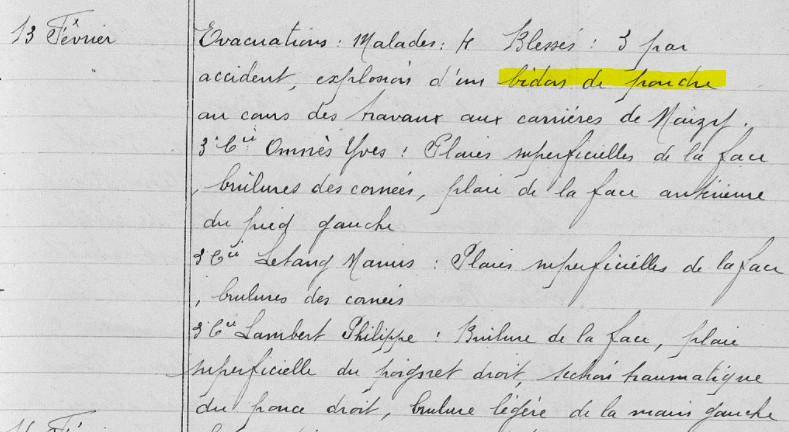 13 Février
Evacuations : Malades : 4 Blessés : 3 par
accident, explosion d'un bidon de poudre
au cours des travaux aux carrières de Maizy.
3e Cie Omnès Yves : Plaies superficielles de la face
, brûlures des cornées, plaie de la face antérieure
du pied gauche
3e Cie Letang Marius : Plaies superficielles de la face
, brulures des cornées
3e Cie Lambert Philippe : Brûlure de la face, plaie
superficielle du poignet droit, section traumatique
du pouce droit, brulure légère de la main gauche
Février